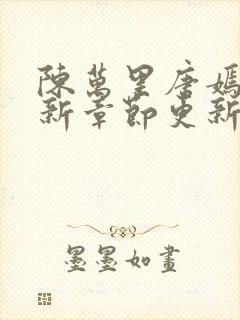 陳萬里唐嫣
新章節更新
墨墨如畫